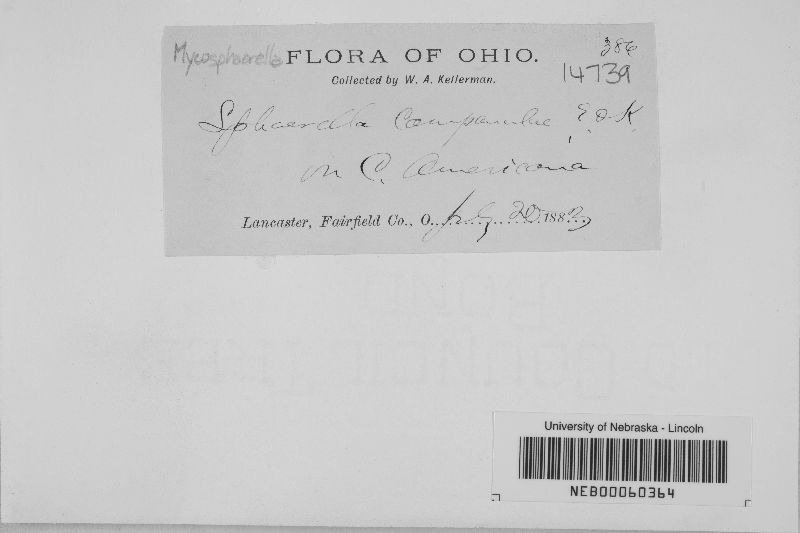 Mycosphaerella FLORA OF OHIO. 386
Collected by W. A. Kellerman. 14739
Sphaerella Campanulae E & K
on C. Americana
Lancaster, Fairfield Co., O., July 20 1883
University of Nebraska - Lincoln
NEB00060364